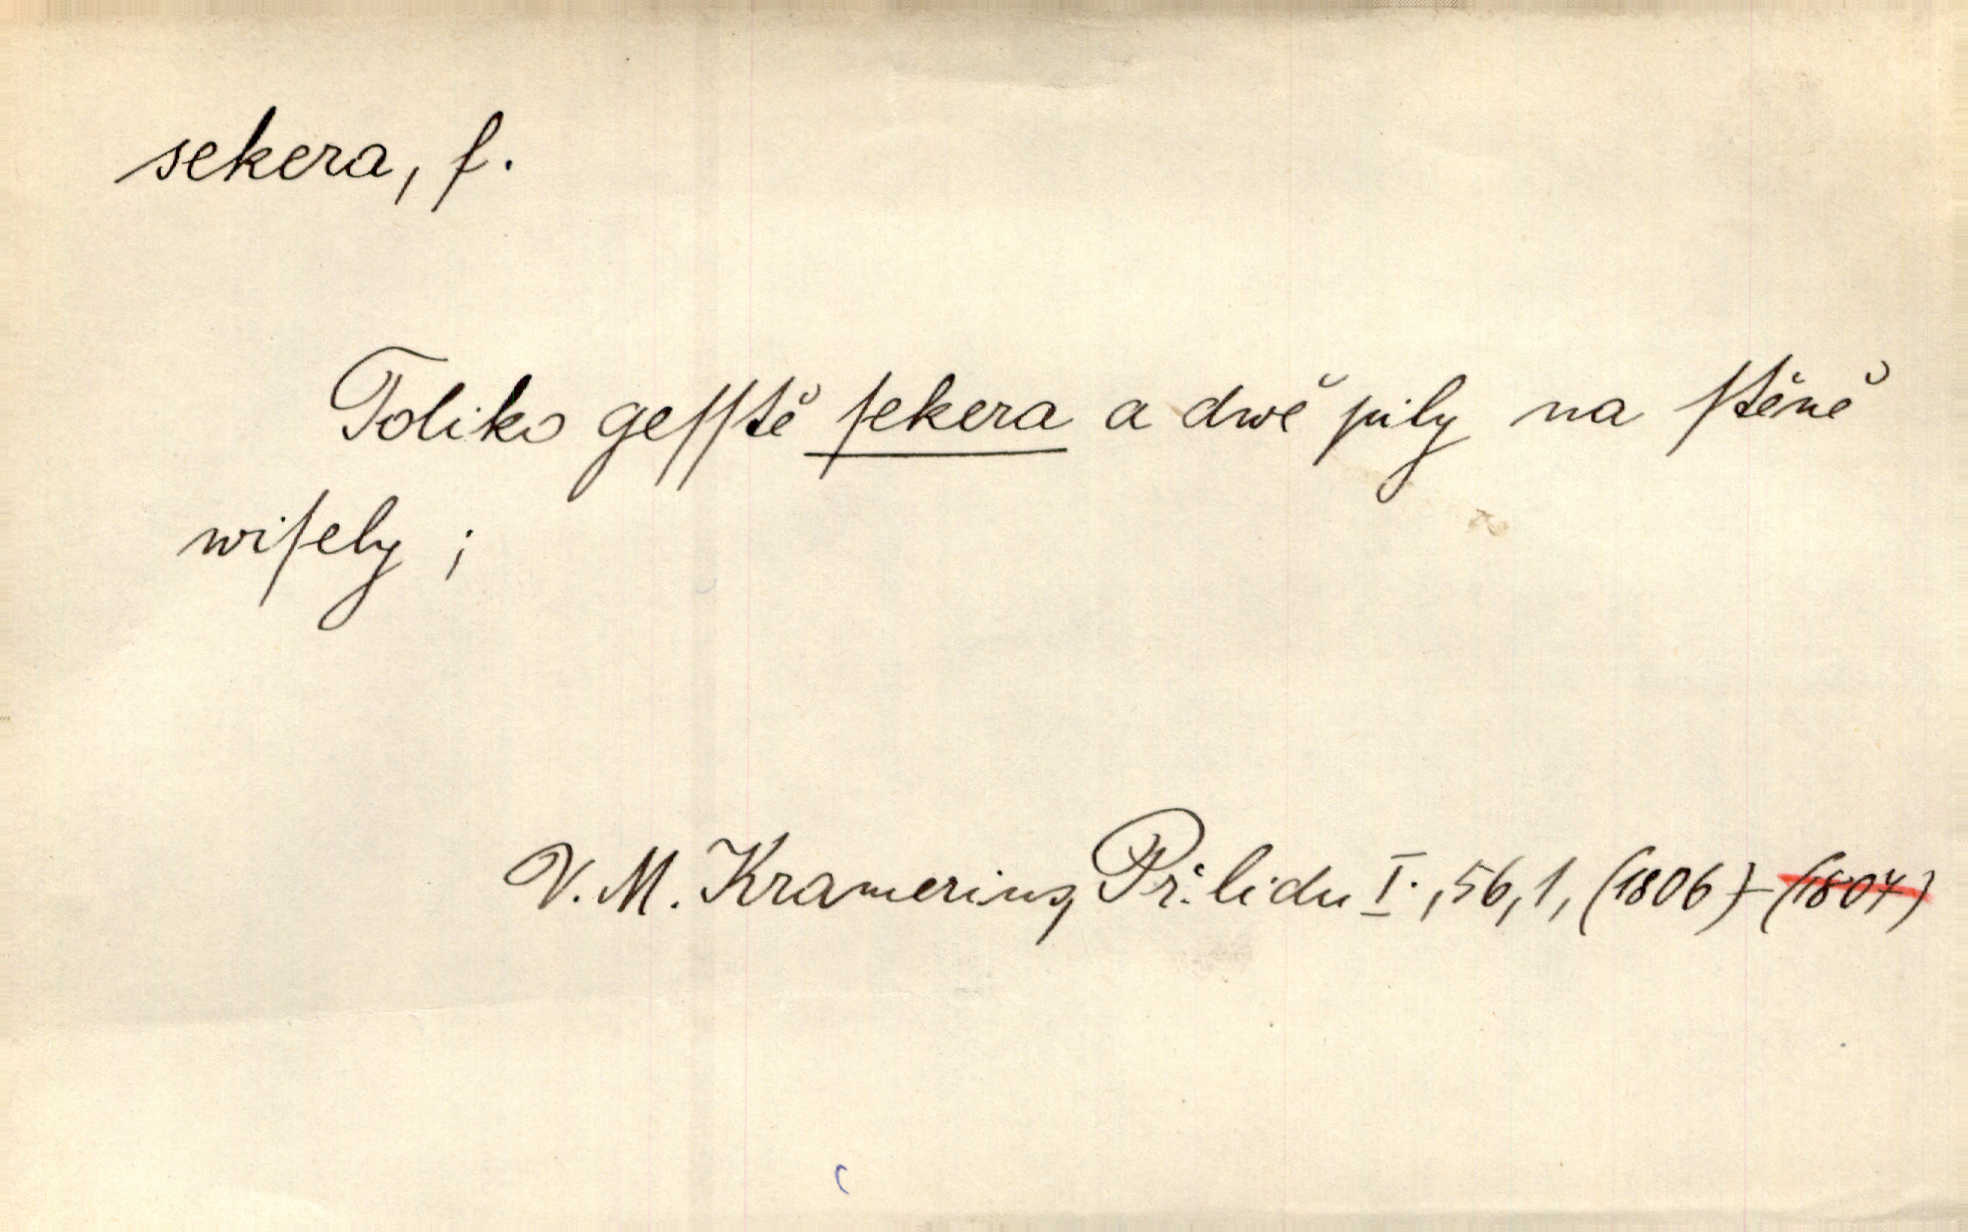 sekera, f.
Toliko geſſtě ſekera a dwě pily na ſtěně
wiſely ;
V. M. Kramerius, Př. lidu I., 56, 1, (1806) - (1807)